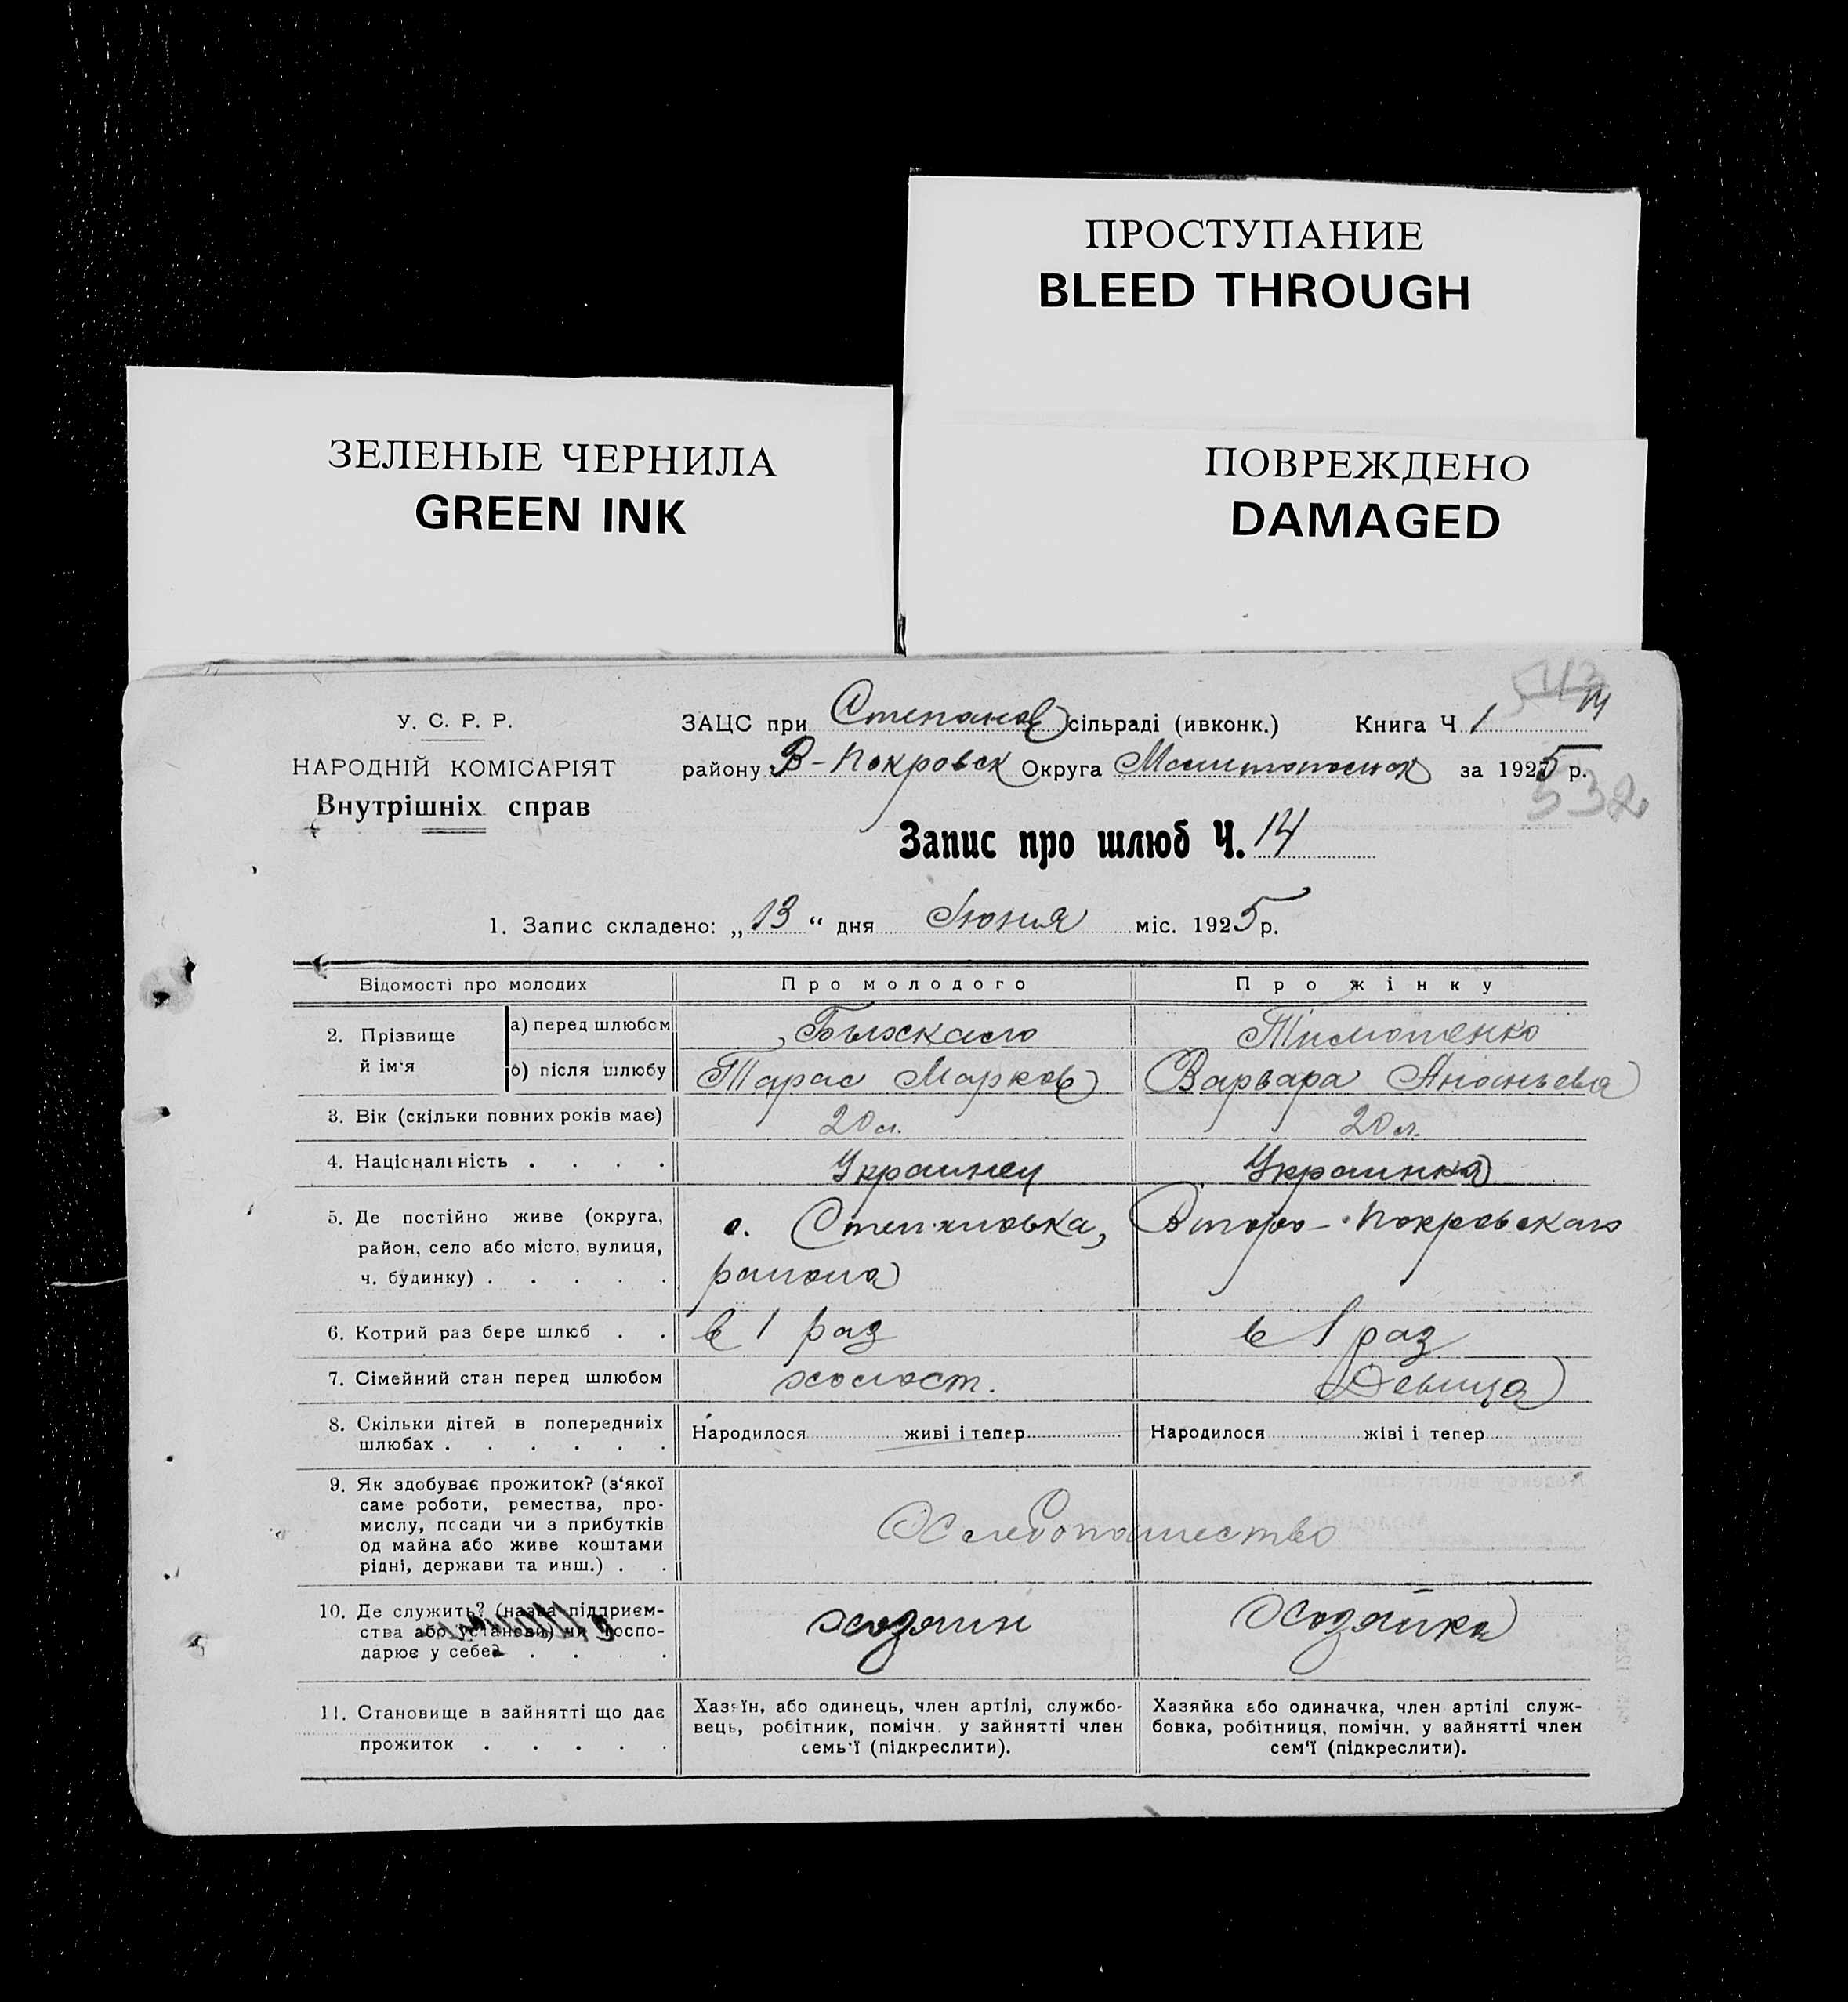 ПРОСТУПАНИЕ
BLEED THROUGH
ЗЕЛЕНЫЕ ЧЕРНИЛА
GREEN INK
ПОВРЕЖДЕНО
DAMAGED
У. С. Р. Р.
НАРОДНІЙ КОМІСАРІЯТ
Внутрішніх справ
14
ЗАЦС при Степанов сільраді (ивконк.) Книга Ч 1
району В-Покровск Округа за 1925 р.
532
Запис про шлюб Ч. 14
1. Запис складено: „13“ дня Июня міс. 1925 р.
Відомості про молодих Про молодого Про жінку
2. Прізвище й ім'я
а) перед шлюбом Тимошенко
б) після шлюбу Тарас Марков Варвара Ананьевна
3. Вік (скільки повних років має) 20 л. 20 л.
4. Національність . . . . Украинец Украинка
5. Де постійно живе (округа, с. Степановка, Второ-Покровскаго
район, село або місто, вулиця, района
ч. будинку) . . . . .
6. Котрий раз бере шлюб . . в 1 раз в 1 раз
7. Сімейний стан перед шлюбом холост. Девица
8. Скільки дітей в попередниіх Народилося живі і тепер Народилося жіві і тепер
шлюбах . . . . . .
9. Як здобуває прожиток? (з'якої
саме роботи, ремества, про-
мислу, посади чи з прибутків Хлебопашество
од майна або живе коштами
рідні, держави та инш.) . .
10. Де служить? (назва підприєм- хозяин Хозяйка
ства або установи) чи госпо-
дарює у себе? . . . .
11. Становище в зайнятті що дає
прожиток . . . . .
Хазяїн, або одинець, член артілі, службо-
вець, робітник, помічн. у зайнятті член
семь'ї (підкреслити).
Хазяйка або одиначка, член артілі служ-
бовка, робітниця, помічн. у зайнятті член
сем'ї (підкреслити).